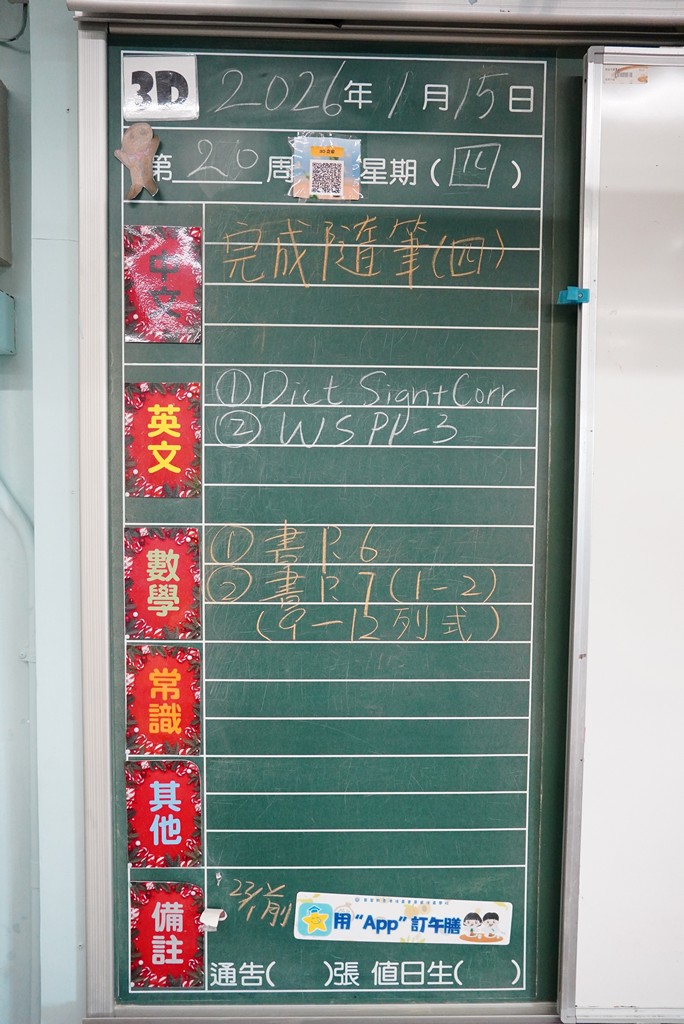 3D 2026年1月15日
第20周 星期(四)
中文
完成隨筆(四)
英文
①Dict Sign+Corr
②WS PP-3
數學
①書P.6
②書P.7(1-2)
(9-12列式)
常識
其他
備註
23/1前
用“App”訂午膳
通告( )張 值日生( )